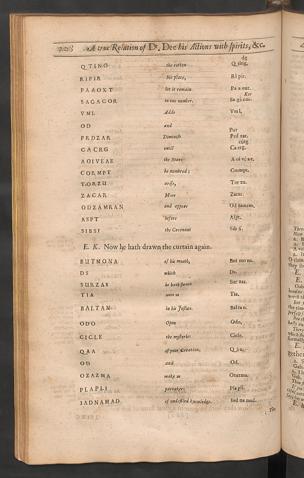 A true Relation of Dr. Dee his Actions with spirits, &c.
QTING the rotten Q ting.
RIPIR his place, Ri pir.
PAAOXT let it remain Pa a oxt.
SAGACOR in one number. Sa ga cor.
VML Adde Vml,
OD and
PRDZAR Diminish Prd zar.
CACRG until Ca crg.
AOIVEAE the Stars A oi ve ae.
CORMPT be numbred; Cormpt.
TORZU arise, Tor zu.
ZACAR Move Zacar.
ODZAMRAN and appear Od zamran,
ASPT before Aspt.
SIBSI the Covenant Sib si.
E. K. Now he hath drawn the curtain again.
BUTMONA of his mouth, But mo na.
DS which Ds.
SURZAS he hath sworn Sur zas.
TIA unto us Tia.
BALTAN in his Justice. Baltan.
ODO Open Odo,
CICLE the mysteries Cicle.
QAA of your Creation, Q a a.
OD and Od.
OZAZMA make us Ozazma.
PLAPLI partakers Pla pli.
IADNAMAD of undefiled knowledge. Iad na mad.